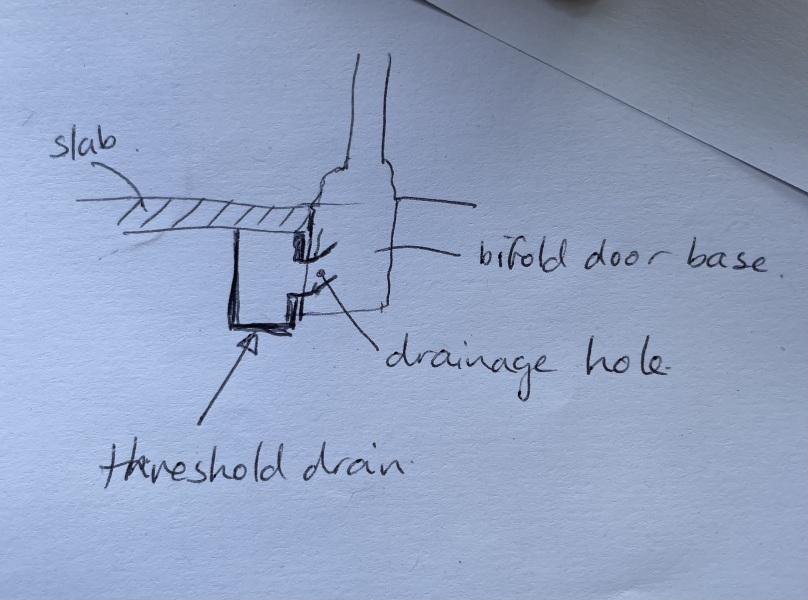 slab.
bifold door base.
drainage hole.
threshold drain.